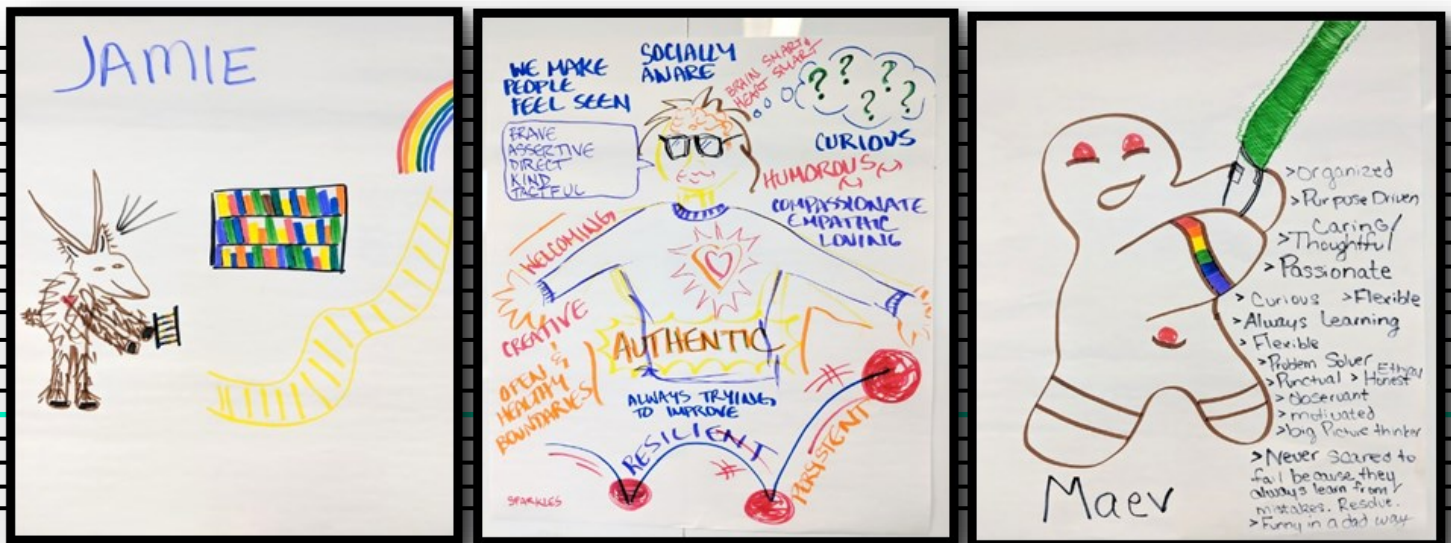 JAMIE
WE MAKE
PEOPLE
FEEL SEEN
SOCIALLY
AWARE
BRAIN SMART &
HEART SMART
? ? ? ? ?
BRAVE
ASSERTIVE
DIRECT
KIND
TACTFUL
CURIOUS
HUMOROUS
COMPASSIONATE
EMPATHIC
LOVING
WELCOMING
CREATIVE
OPEN &
HEALTHY
BOUNDARIES
AUTHENTIC
ALWAYS TRYING
TO IMPROVE
RESILIENT
PERSISTENT
SPARKLES
>Organized
>Purpose Driven
Caring/
>Thoughtful
>Passionate
> Curious >Flexible
>Always Learning
> Flexible
>Problem Solver Ethical
>Punctual > Honest
> observant
> motivated
>big Picture thinker
>Never scared to
fail because they
always learn from
mistakes. Resolve.
>Funny in a dad way
Maev